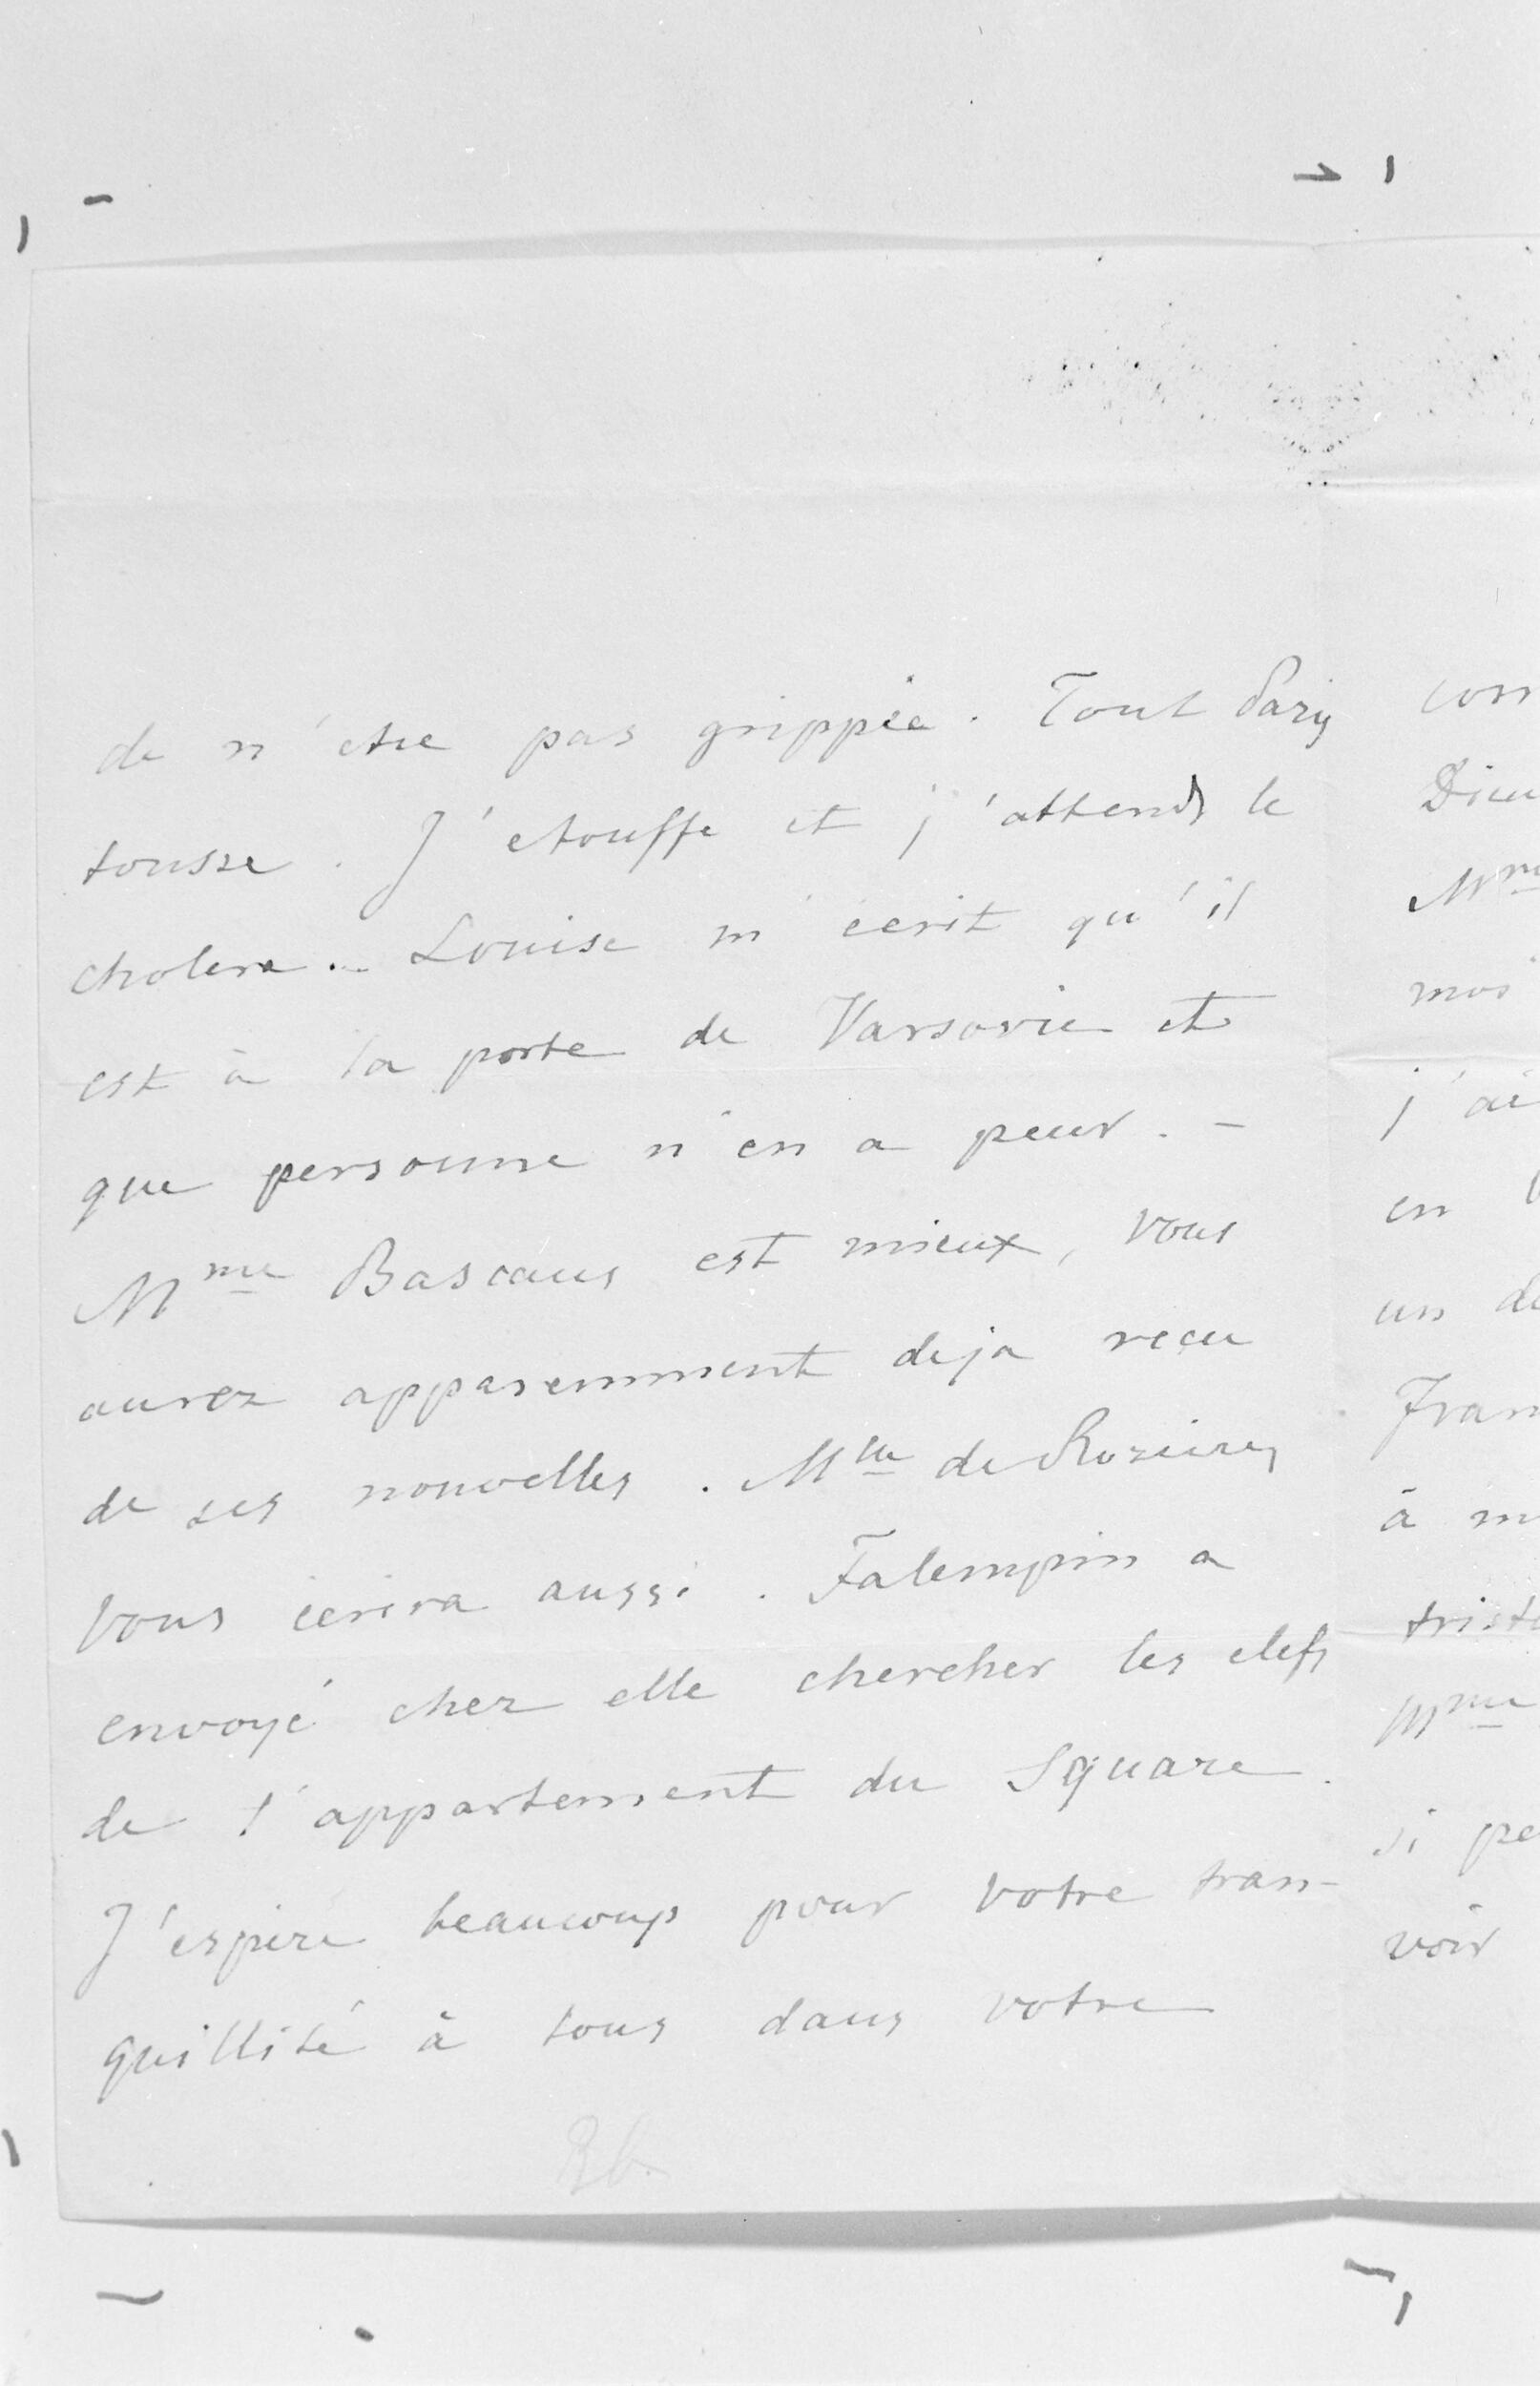 de n'etre pas grippée. Tout Paris
tousse. J'etouffe et j'attends le
cholera. – Louise m'écrit qu'il
est à la porte de Varsovie et
que personne n'en a peur. –
Mme Bascans est mieux, vous
aurez apparemment deja recu
de ses nouvelles. Mlle de Rozieres
vous écrira aussi. Falempin a
envoyé chez elle chercher les clefs
de l'appartement du Square.
J'espère beaucoup pour votre tran-
quillité à tous dans votre
con
Dieu
Mme
moi
j'ai
en
un de
Fran
à m
trist
Mme
si pe
voir